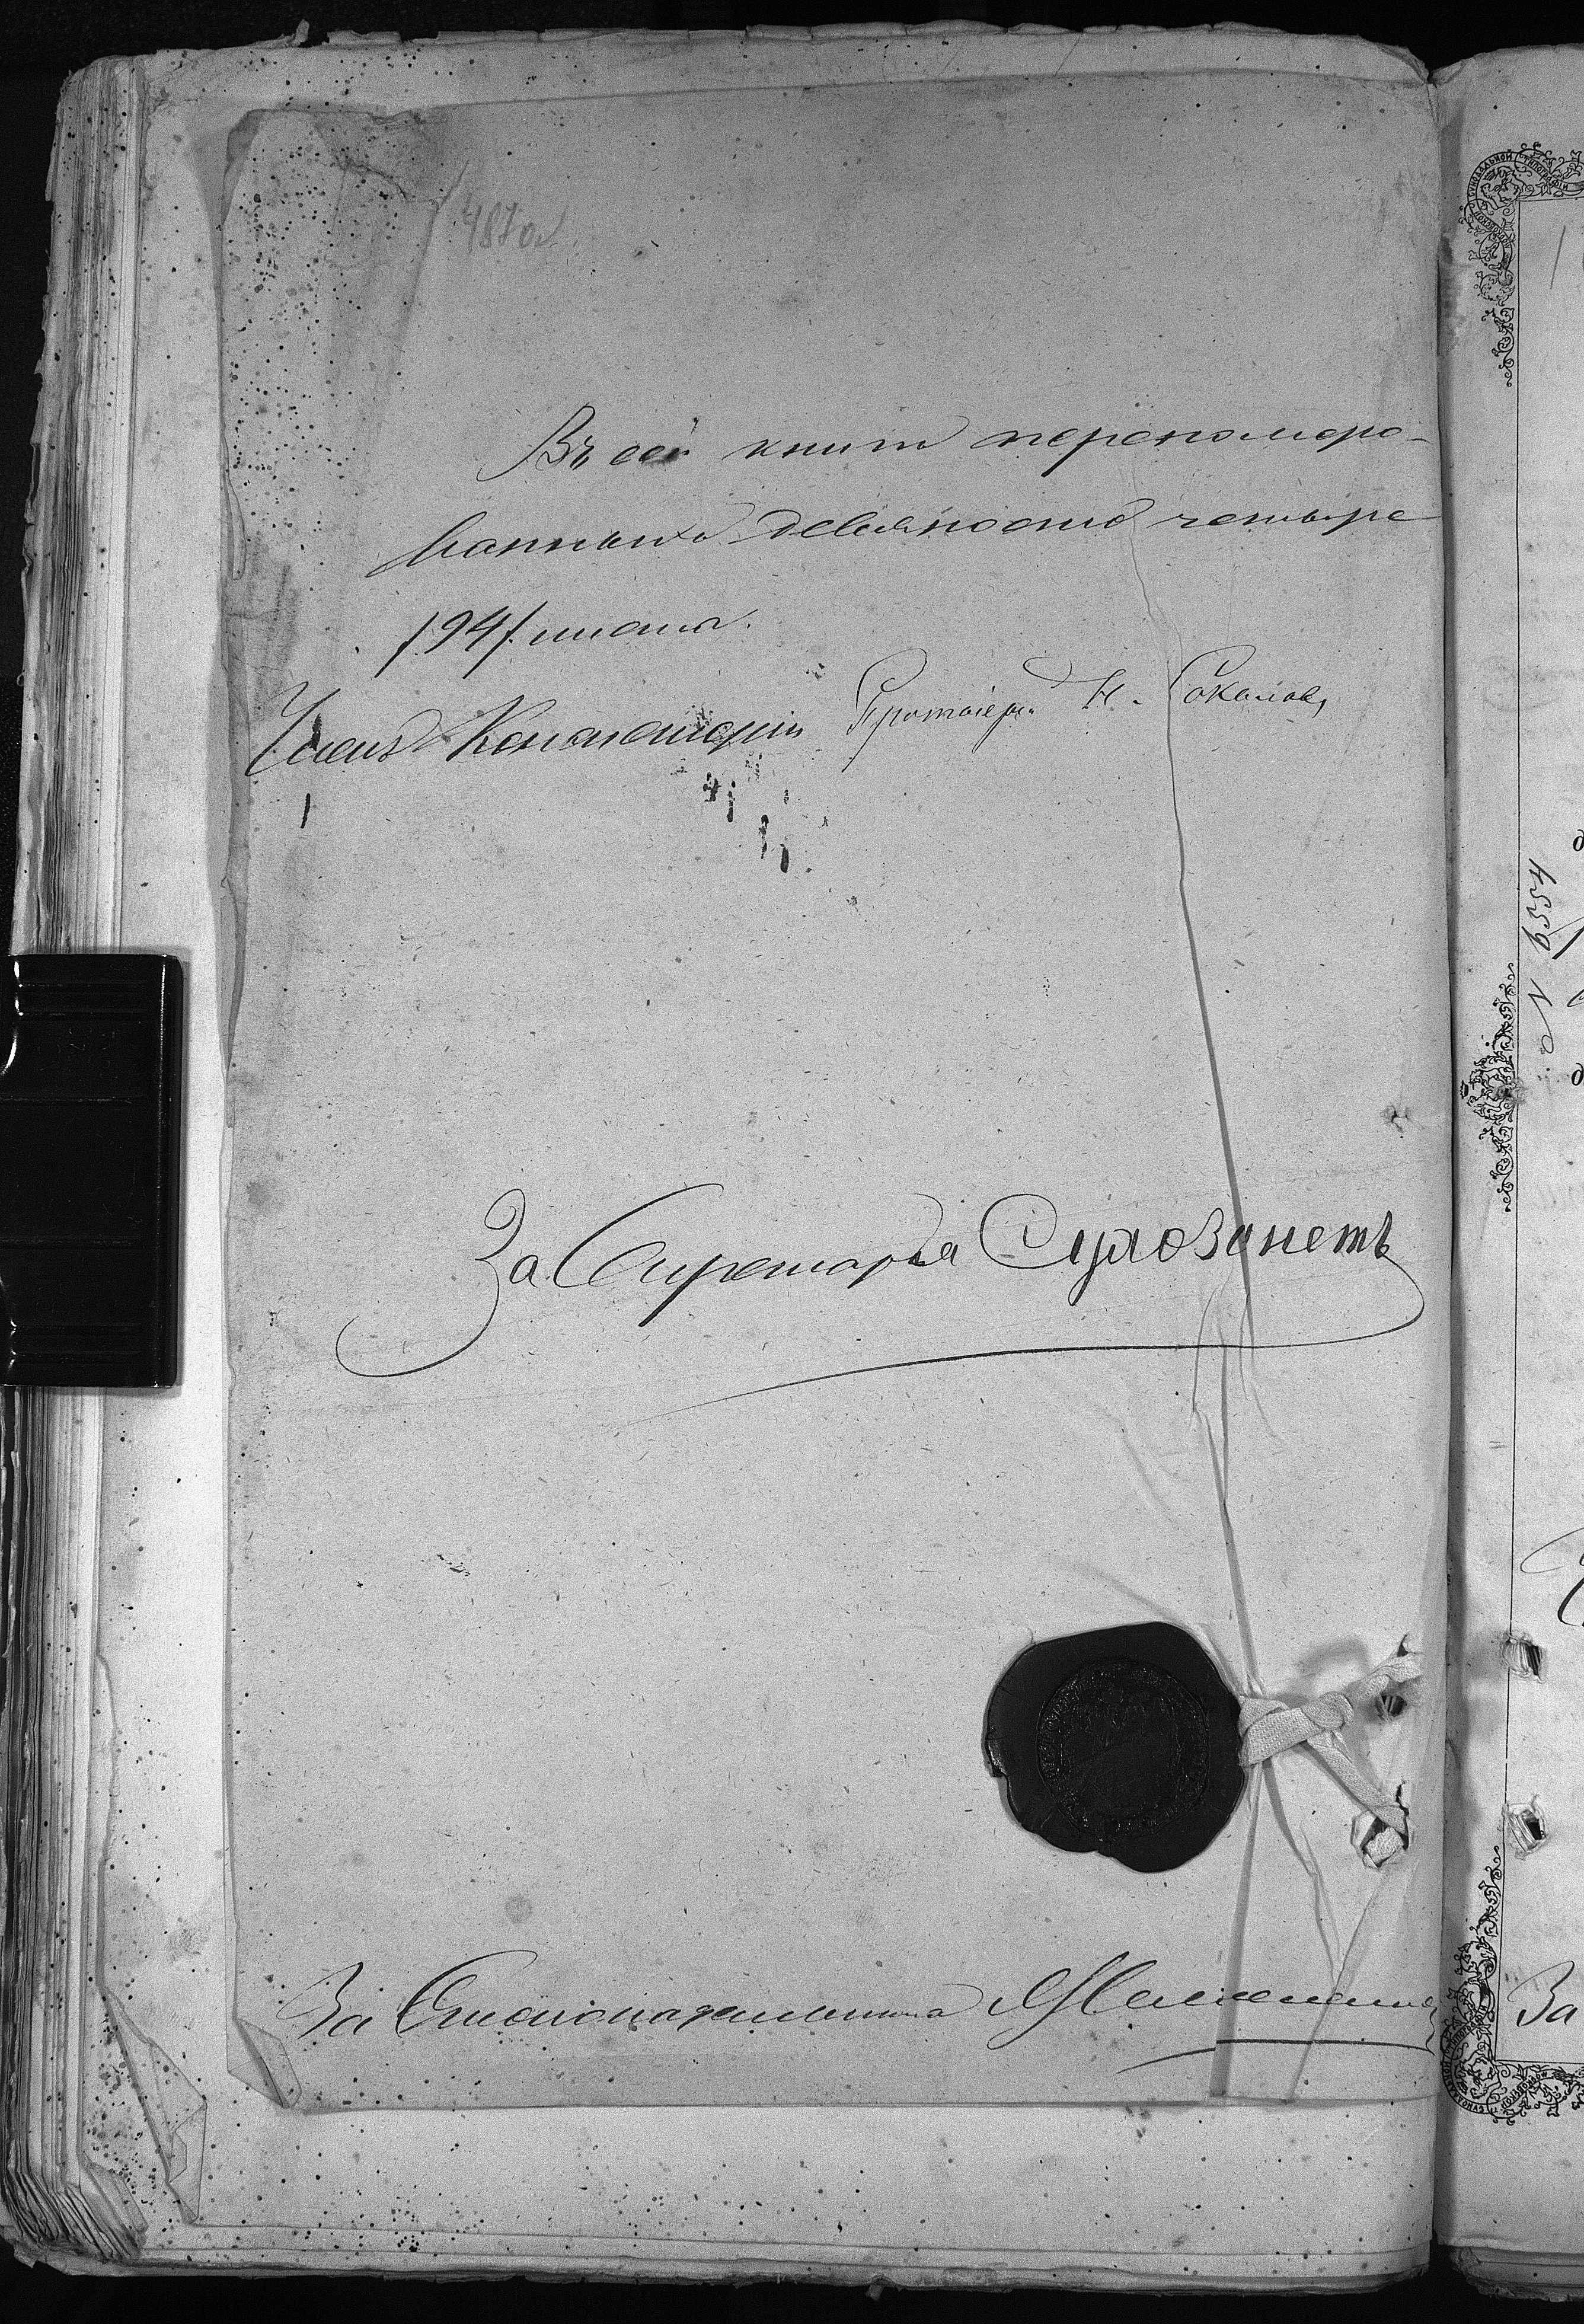 487 об
Въ сей книгѣ перенумеро-
ванныхъ девяносто четыре
/94/ листа.
Членъ Консисторіи Протоіерей Н. Соколовъ
За Секретаря
За Столоначальника
N 6554
За